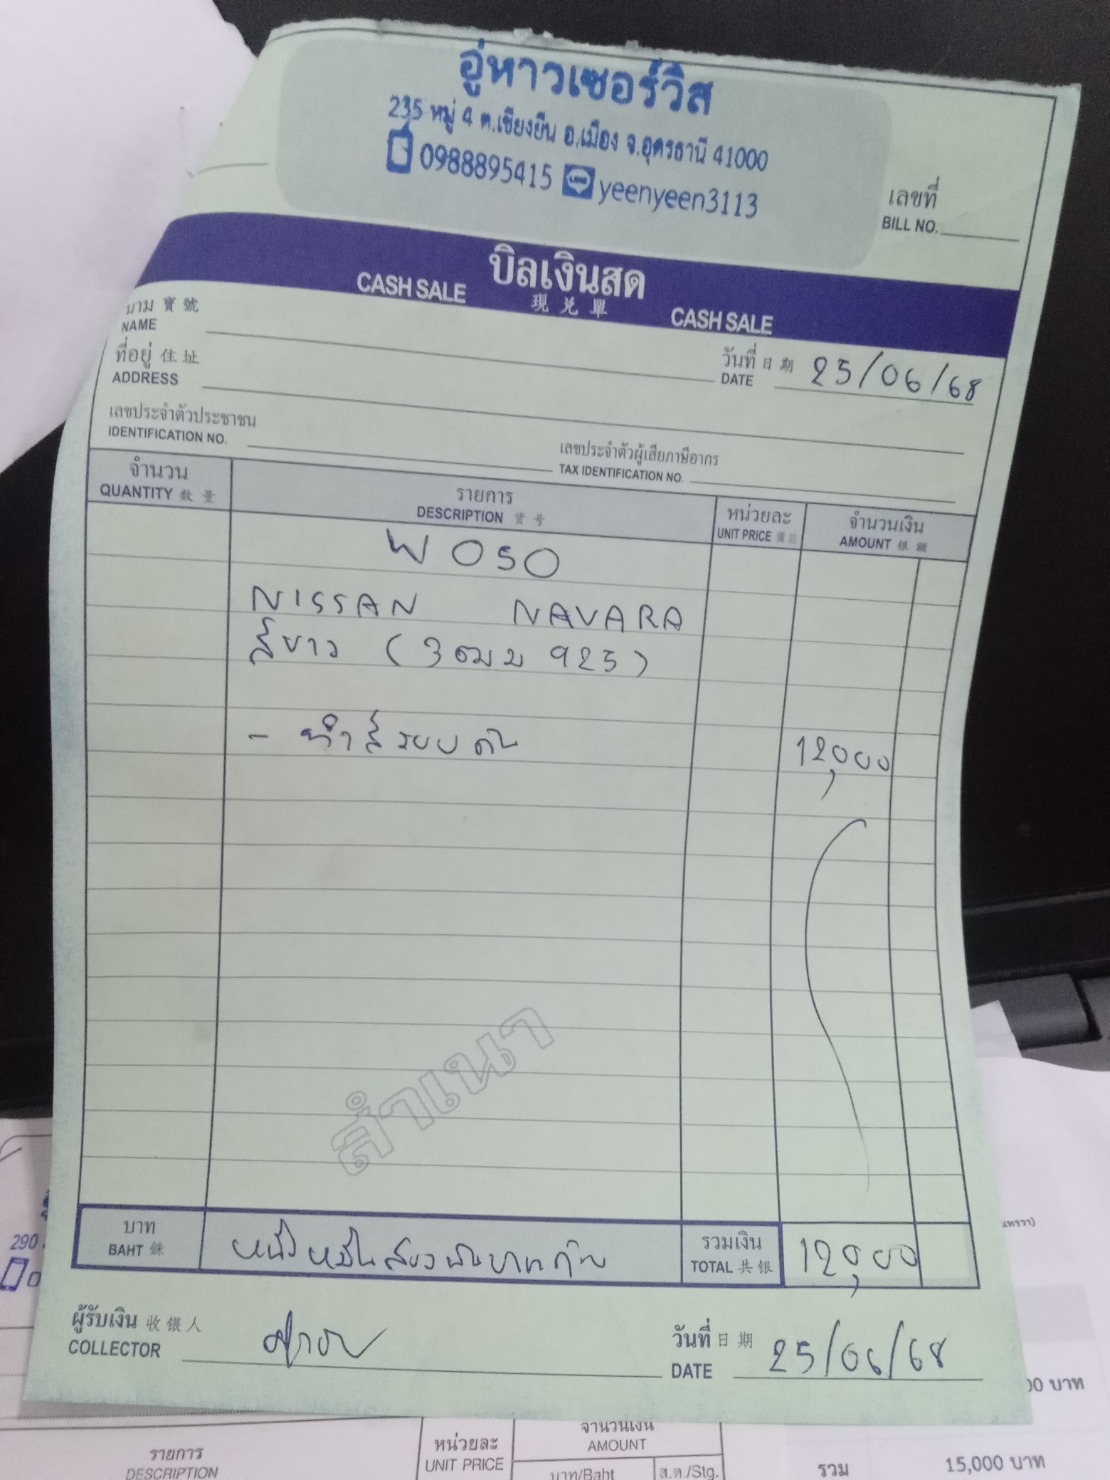 อู่หาวเซอร์วิส
235 หมู่ 4 ต.เชียงยืน อ.เมือง จ.อุดรธานี 41000
0988895415 yeenyeen3113
เลขที่
BILL NO.
CASH SALE บิลเงินสด CASH SALE
現兌單
นาม 寶號
NAME
วันที่ 日期 25/06/68
DATE
ที่อยู่ 住址
ADDRESS
เลขประจำตัวประชาชน
IDENTIFICATION NO.
เลขประจำตัวผู้เสียภาษีอากร
TAX IDENTIFICATION NO.
จำนวน รายการ หน่วยละ จำนวนเงิน
QUANTITY 數量 DESCRIPTION 貨号 UNIT PRICE AMOUNT 銀額
W050
NISSAN NAVARA
สีขาว (3ฒม 925)
- ทำสีรอบคัน 12,000
สำเนา
บาท
BAHT 銖
หนึ่งหมื่นสองพันบาทถ้วน
รวมเงิน
TOTAL 共銀
12,000
ผู้รับเงิน 收銀人
COLLECTOR
วันที่ 日期 25/06/68
DATE
290
00 บาท
รายการ
DESCRIPTION
หน่วยละ
UNIT PRICE
จำนวนเงิน
AMOUNT
บาท/Baht ส.ต./Stg.
รวม 15,000 บาท